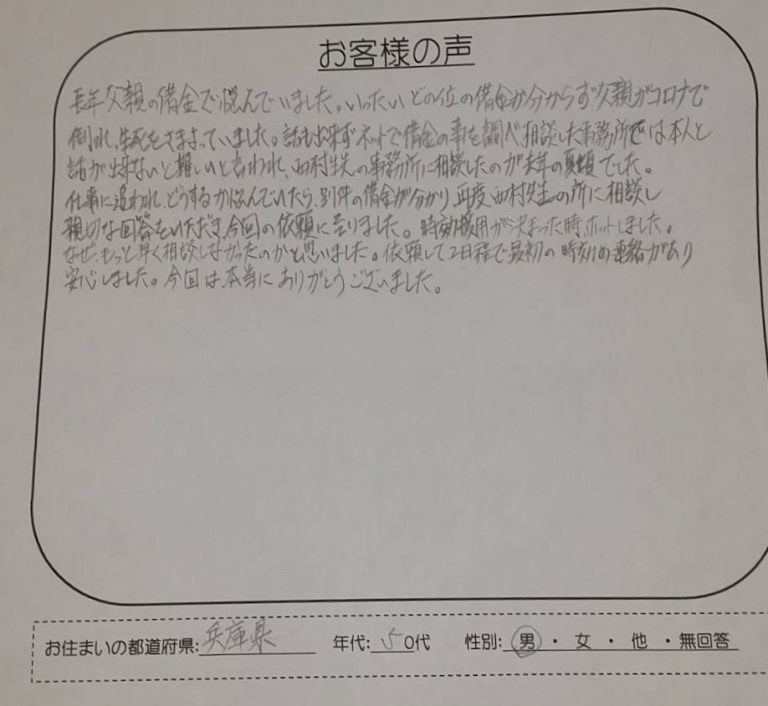 お客様の声
長年父親の借金で悩んでいました。いったいどの位の借金か分からず父親がコロナで
倒れ、生死をさまよっていました。話も出来ずネットで借金の事を調べ相談した事務所では本人と
話が出来ないと難しいと言われ、西村先生の事務所に相談したのが去年の夏頃でした。
仕事に追われ、どうするか悩んでいたら、別件の借金が分かり、再度西村先生の所に相談し
親切な回答をいただき今回の依頼に至りました。時効援用が決まった時、ホットしました。
なぜ、もっと早く相談しなかったのかと思いました。依頼して2日程で最初の時効の連絡があり
安心しました。今回は、本当にありがとうございました。
お住まいの都道府県:兵庫県 年代:50代 性別:男・女・他・無回答